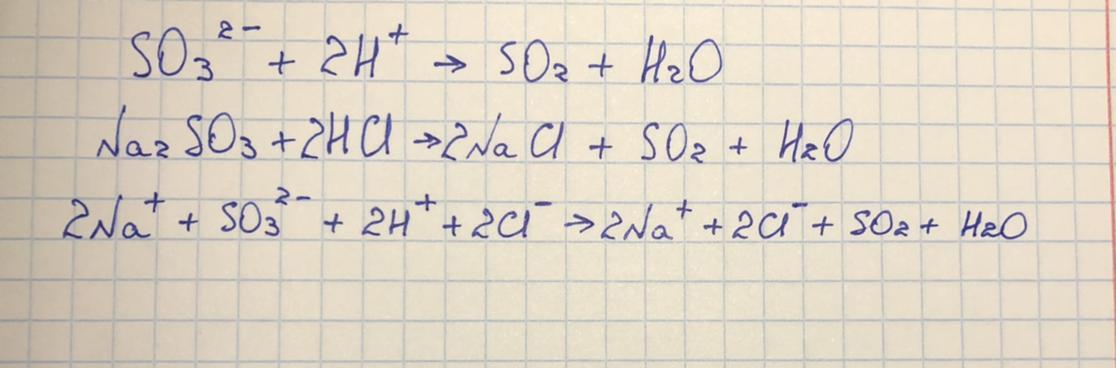 SO₃²⁻ + 2H⁺ → SO₂ + H₂O
Na₂SO₃ + 2HCl → 2NaCl + SO₂ + H₂O
2Na⁺ + SO₃²⁻ + 2H⁺ + 2Cl⁻ → 2Na⁺ + 2Cl⁻ + SO₂ + H₂O